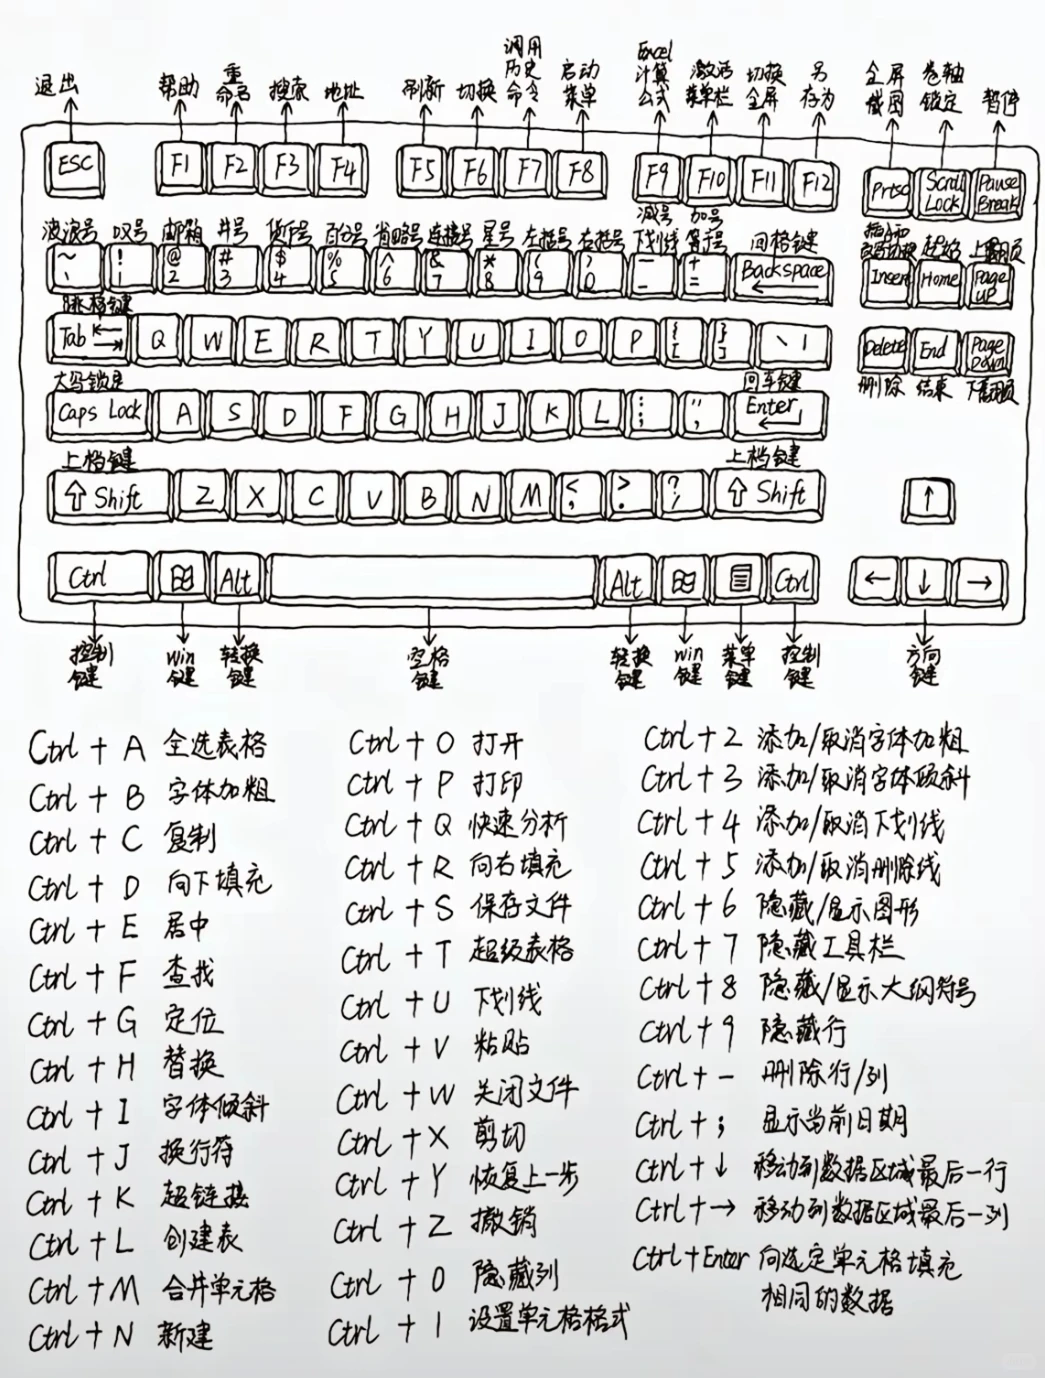 退出 帮助 重命名 搜索 地址 刷新 切换 调用历史命令 启动菜单 Excel计算公式 激活菜单栏 切换全屏 另存为 全屏截图 卷轴锁定 暂停
ESC F1 F2 F3 F4 F5 F6 F7 F8 F9 F10 F11 F12 Prtsc Scroll Lock Pause Break
波浪号 叹号 邮箱 井号 货币号 百分号 省略号 连接号 星号 左括号 右括号 减号下划线 加号等于号 回格键 插入和改写切换 起始 上翻页
~ ` ! 1 @ 2 # 3 $ 4 % 5 ^ 6 & 7 * 8 ( 9 ) 0 — - + = Backspace Insert Home Page UP
跳格键
Tab Q W E R T Y U I O P { [ } ] \ | Delete End Page Down
大写锁定 回车键 删除 结束 下翻页
Caps Lock A S D F G H J K L : ; " ' Enter
上档键 上档键
Shift Z X C V B N M < , > . ? / Shift ↑
Ctrl Alt Alt Ctrl ← ↓ →
控制键 win键 转换键 空格键 转换键 win键 菜单键 控制键 方向键
Ctrl + A 全选表格
Ctrl + B 字体加粗
Ctrl + C 复制
Ctrl + D 向下填充
Ctrl + E 居中
Ctrl + F 查找
Ctrl + G 定位
Ctrl + H 替换
Ctrl + I 字体倾斜
Ctrl + J 换行符
Ctrl + K 超链接
Ctrl + L 创建表
Ctrl + M 合并单元格
Ctrl + N 新建
Ctrl + O 打开
Ctrl + P 打印
Ctrl + Q 快速分析
Ctrl + R 向右填充
Ctrl + S 保存文件
Ctrl + T 超级表格
Ctrl + U 下划线
Ctrl + V 粘贴
Ctrl + W 关闭文件
Ctrl + X 剪切
Ctrl + Y 恢复上一步
Ctrl + Z 撤销
Ctrl + 0 隐藏列
Ctrl + 1 设置单元格格式
Ctrl + 2 添加/取消字体加粗
Ctrl + 3 添加/取消字体倾斜
Ctrl + 4 添加/取消下划线
Ctrl + 5 添加/取消删除线
Ctrl + 6 隐藏/显示图形
Ctrl + 7 隐藏工具栏
Ctrl + 8 隐藏/显示大纲符号
Ctrl + 9 隐藏行
Ctrl + - 删除行/列
Ctrl + ; 显示当前日期
Ctrl + ↓ 移动到数据区域最后一行
Ctrl + → 移动到数据区域最后一列
Ctrl + Enter 向选定单元格填充
相同的数据